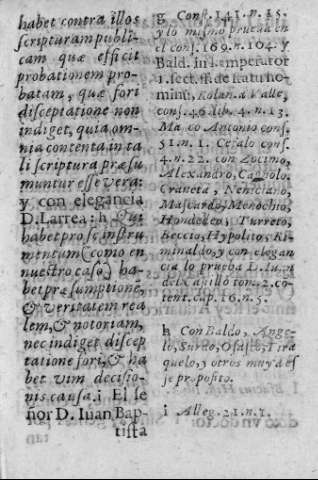 habet contra illos
scripturam publi-
cam quæ efficit
probationem pro-
batam, quæ fori
disceptatione non
indiget, quia om-
nia contenta in ta
li scriptura præsu
muntur esse vera:
y con elegancia
D. Larrea: h Qui
habet pro se instru
mentum (como en
nuestro caso) ha-
bet præsumptione,
& veritatem rea
lem, & notoriam,
nec indiget discep
tatione fori, & ha
bet vim decisio-
nis causa. i El se
ñor D. Iuan Bap-
tista
g Cons. 141. n. 15.
y lo mismo prueba en
el cons. 169. n. 104. y
Bald. in l. Imperator
1. sect. ff. de statu ho-
min. Rolan. à Valle,
cons. 46. lib. 4. n. 13.
Marco Antonio cons.
51. n. 1. Cefalo cons.
4. n. 22. con Zocino,
Alexandro, Cagnolo,
Craveta, Neviciano,
Mascardo, Menochio,
Hondedeo, Turreto,
Beccio, Hypolito, Ri-
minaldo, y con elegan
cia lo prueba D. Iuan
del Castillo tom. 2. co-
tent. cap. 16. n. 5.
h Con Baldo, Ange-
lo, Surdo, Osasco, Tira
quelo, y otros muy de es
te proposito.
i Alleg. 21. n. 1.